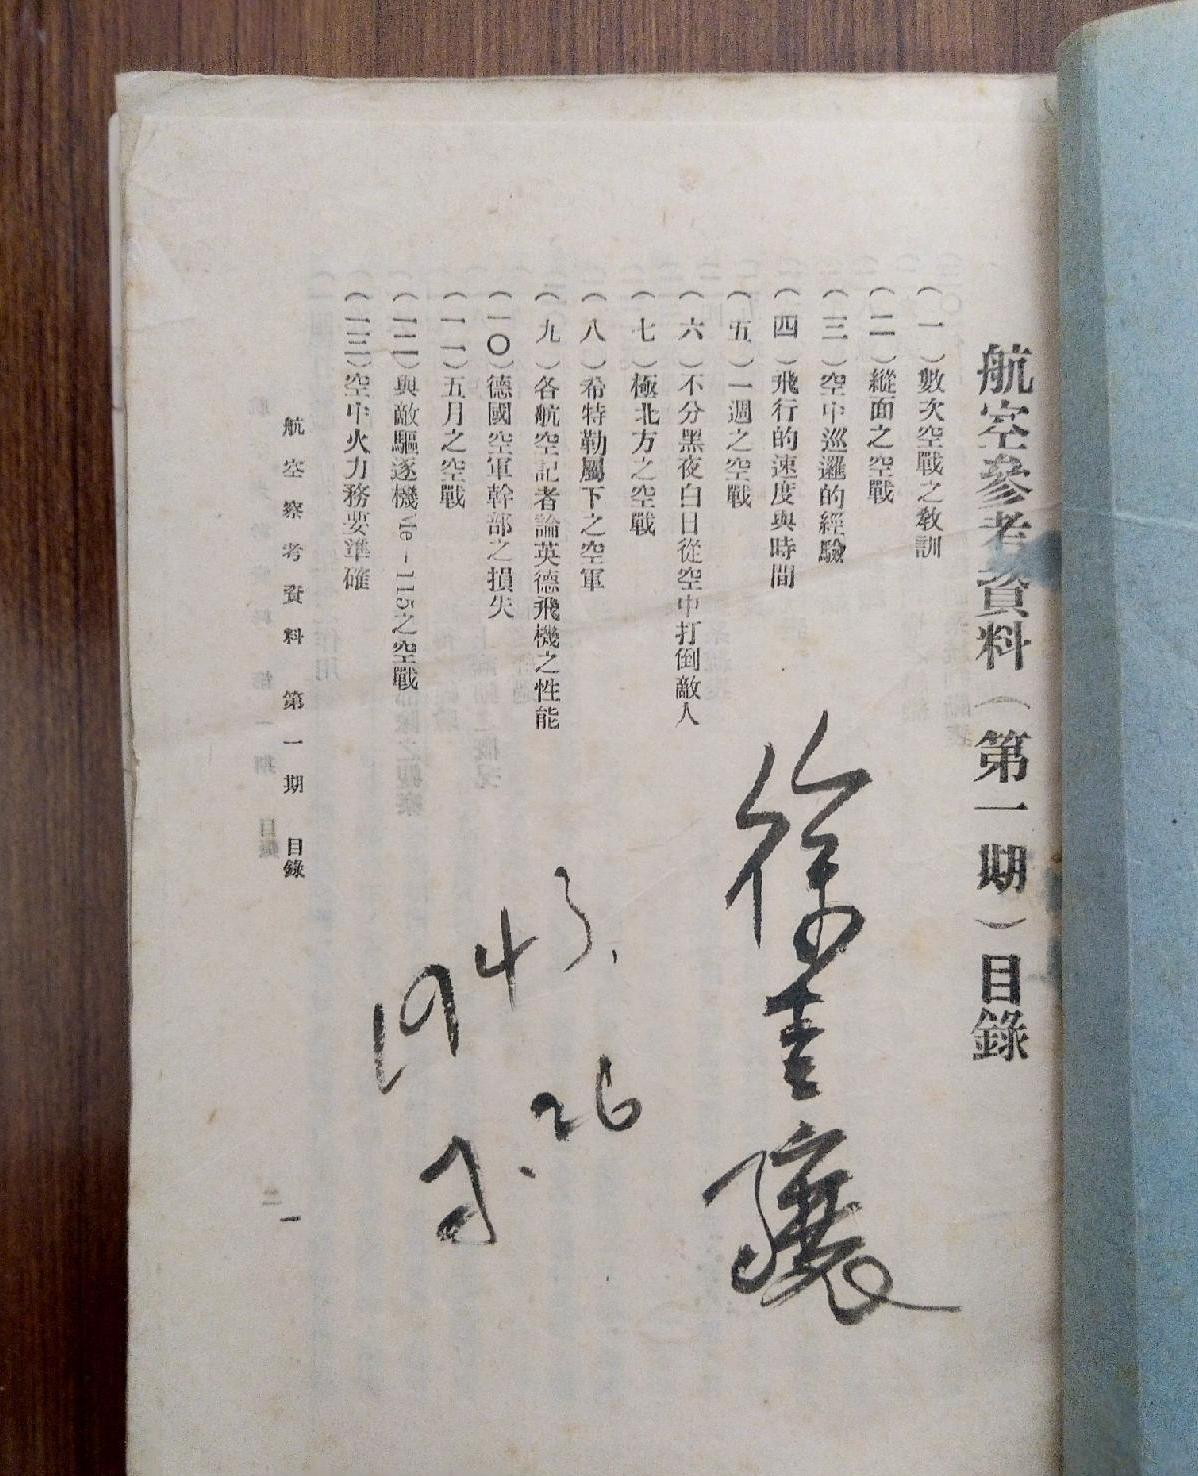 航空參考資料（第一期）目錄
（一）數次空戰之教訓
（二）縱面之空戰
（三）空中巡邏的經驗
（四）飛行的速度與時間
（五）一週之空戰
（六）不分黑夜白日從空中打倒敵人
（七）極北方之空戰
（八）希特勒屬下之空軍
（九）各航空記者論英德飛機之性能
（一〇）德國空軍幹部之損失
（一一）五月之空戰
（一二）與敵驅逐機Me－115之空戰
（一三）空中火力務要準確
航空察考資料 第一期 目錄
一
徐
1943.
26